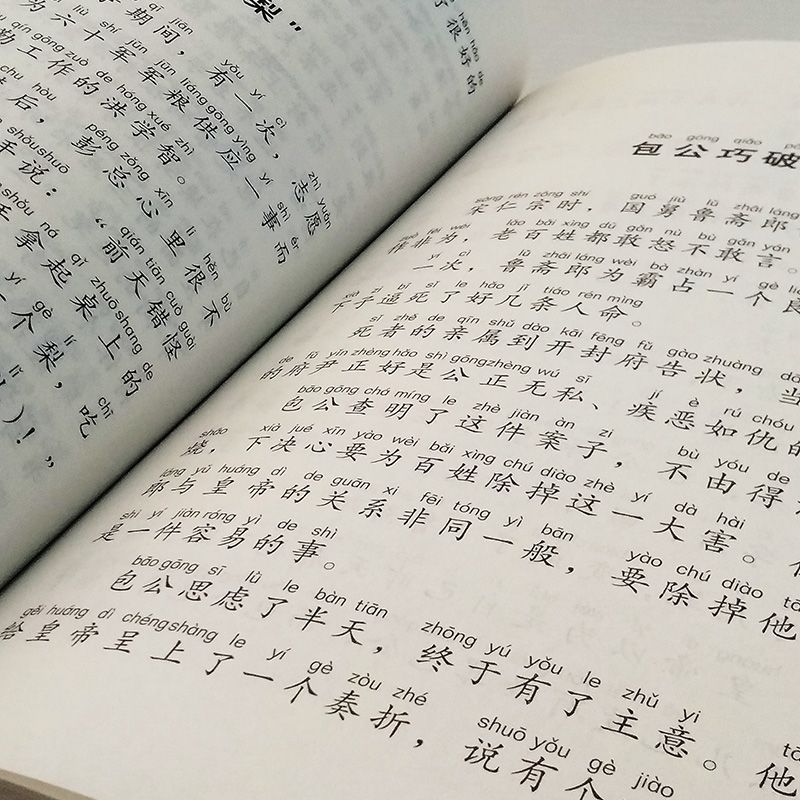 梨”
hěn hǎo de
了很好的
qī jiān yǒu yí cì zhì yuàn
期间，有一次，志愿
liù shí jūn jūn liáng gōng yìng yí shì ér
为六十军军粮供应一事而
qín gōng zuò de hóng xué zhì
勤工作的洪学智。
hòu péng zǒng xīn lǐ hěn bù
后，彭总心里很不
shǒu shuō qián tiān cuò guài
手说：“前天错怪
ná qǐ zhuō shang de
拿起桌上的
yí gè lí chī
一个梨，吃
lí
）！”
bāo gōng qiǎo pò
包公巧破
sòng rén zōng shí guó jiù lǔ zhāi láng
宋仁宗时，国舅鲁斋郎
zuò fēi wéi lǎo bǎi xìng dū gǎn nù bù gǎn yán
作非为，老百姓都敢怒不敢言。
yí cì lǔ zhāi láng wèi bà zhàn yí gè liáng
一次，鲁斋郎为霸占一个良
xià zi bī sǐ le hǎo jǐ tiáo rén mìng
下子逼死了好几条人命。
sǐ zhě de qīn shǔ dào kāi fēng fǔ gào zhuàng dāng
死者的亲属到开封府告状，当
de fǔ yǐn zhèng hǎo shì gōng zhèng wú sī jí è rú chóu
的府尹正好是公正无私、疾恶如仇的
bāo gōng chá míng le zhè jiàn àn zi bù yóu de
包公查明了这件案子，不由得
shāo xià jué xīn yào wèi bǎi xìng chú diào zhè yí dà hài
烧，下决心要为百姓除掉这一大害。
láng yǔ huáng dì de guān xi fēi tóng yì bān yào chú diào tā
郎与皇帝的关系非同一般，要除掉他
shì yí jiàn róng yì de shì
是一件容易的事。
bāo gōng sī lǜ le bàn tiān zhōng yú yǒu le zhǔ yi
包公思虑了半天，终于有了主意。他
gěi huáng dì chéng shàng le yí gè zòu zhé shuō yǒu gè jiào
给皇帝呈上了一个奏折，说有个